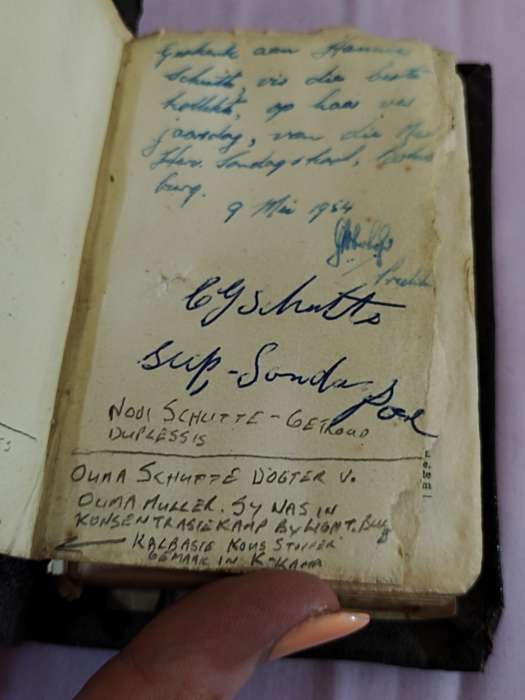 Geskenk aan Hannie
Schutte, vis die beste
kollekte, op haar ver
jaardag, van die Ned
Herv. Sondagskool,
burg.
9 Mei 1954
CGSchutte
Sup-Sondagskool
NODI SCHUTTE - GETROUD
DUPLESSIS
OUMA SCHUTTE DOGTER V.
OUMA MULLER. SY WAS IN
KONSENTRASIEKAMP BY
KALBASIE KOUS STOPPER
GEMAAK IN K-KAMP